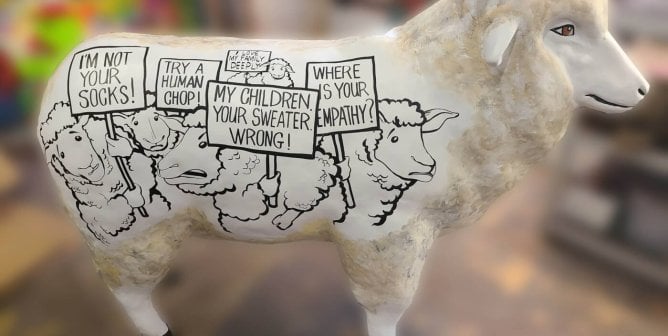 I'M NOT
YOUR
SOCKS!
TRY A
HUMAN
CHOP!
I LOVE
MY FAMILY
DEEPLY
MY CHILDREN
YOUR SWEATER.
WRONG!
WHERE
IS YOUR
EMPATHY?